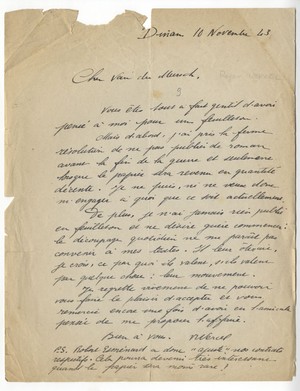 Dinan 10 Novembre 43
Cher Van der Meersch.
Vous êtes tout à fait gentil d'avoir
pensé à moi pour un feuilleton.
Mais d'abord, j'ai pris la ferme
résolution de ne pas publier de roman
avant la fin de la guerre et seulement
lorsque le papier sera revenu en quantité
décente. Je ne puis, ni ne veux donc
m'engager à quoi que ce soit actuellement.
De plus, je n'ai jamais rien publié
en feuilleton et ne désire guère commencer :
le découpage quotidien ne me paraît pas
convenir à mes textes. Il leur ôterait,
je crois, ce par quoi ils valent, si ils valent
par quelque chose : leur mouvement.
Je regrette vivement de ne pouvoir
vous faire le plaisir d'accepter et vous
remercie encore une fois d'avoir eu l'amicale
pensée de me proposer l'affaire.
Bien à vous.
PS. Robert Esménard a donc "ajouté" nos contrats
respectifs. Cela pourra devenir très intéressant
quand le papier sera moins rare !